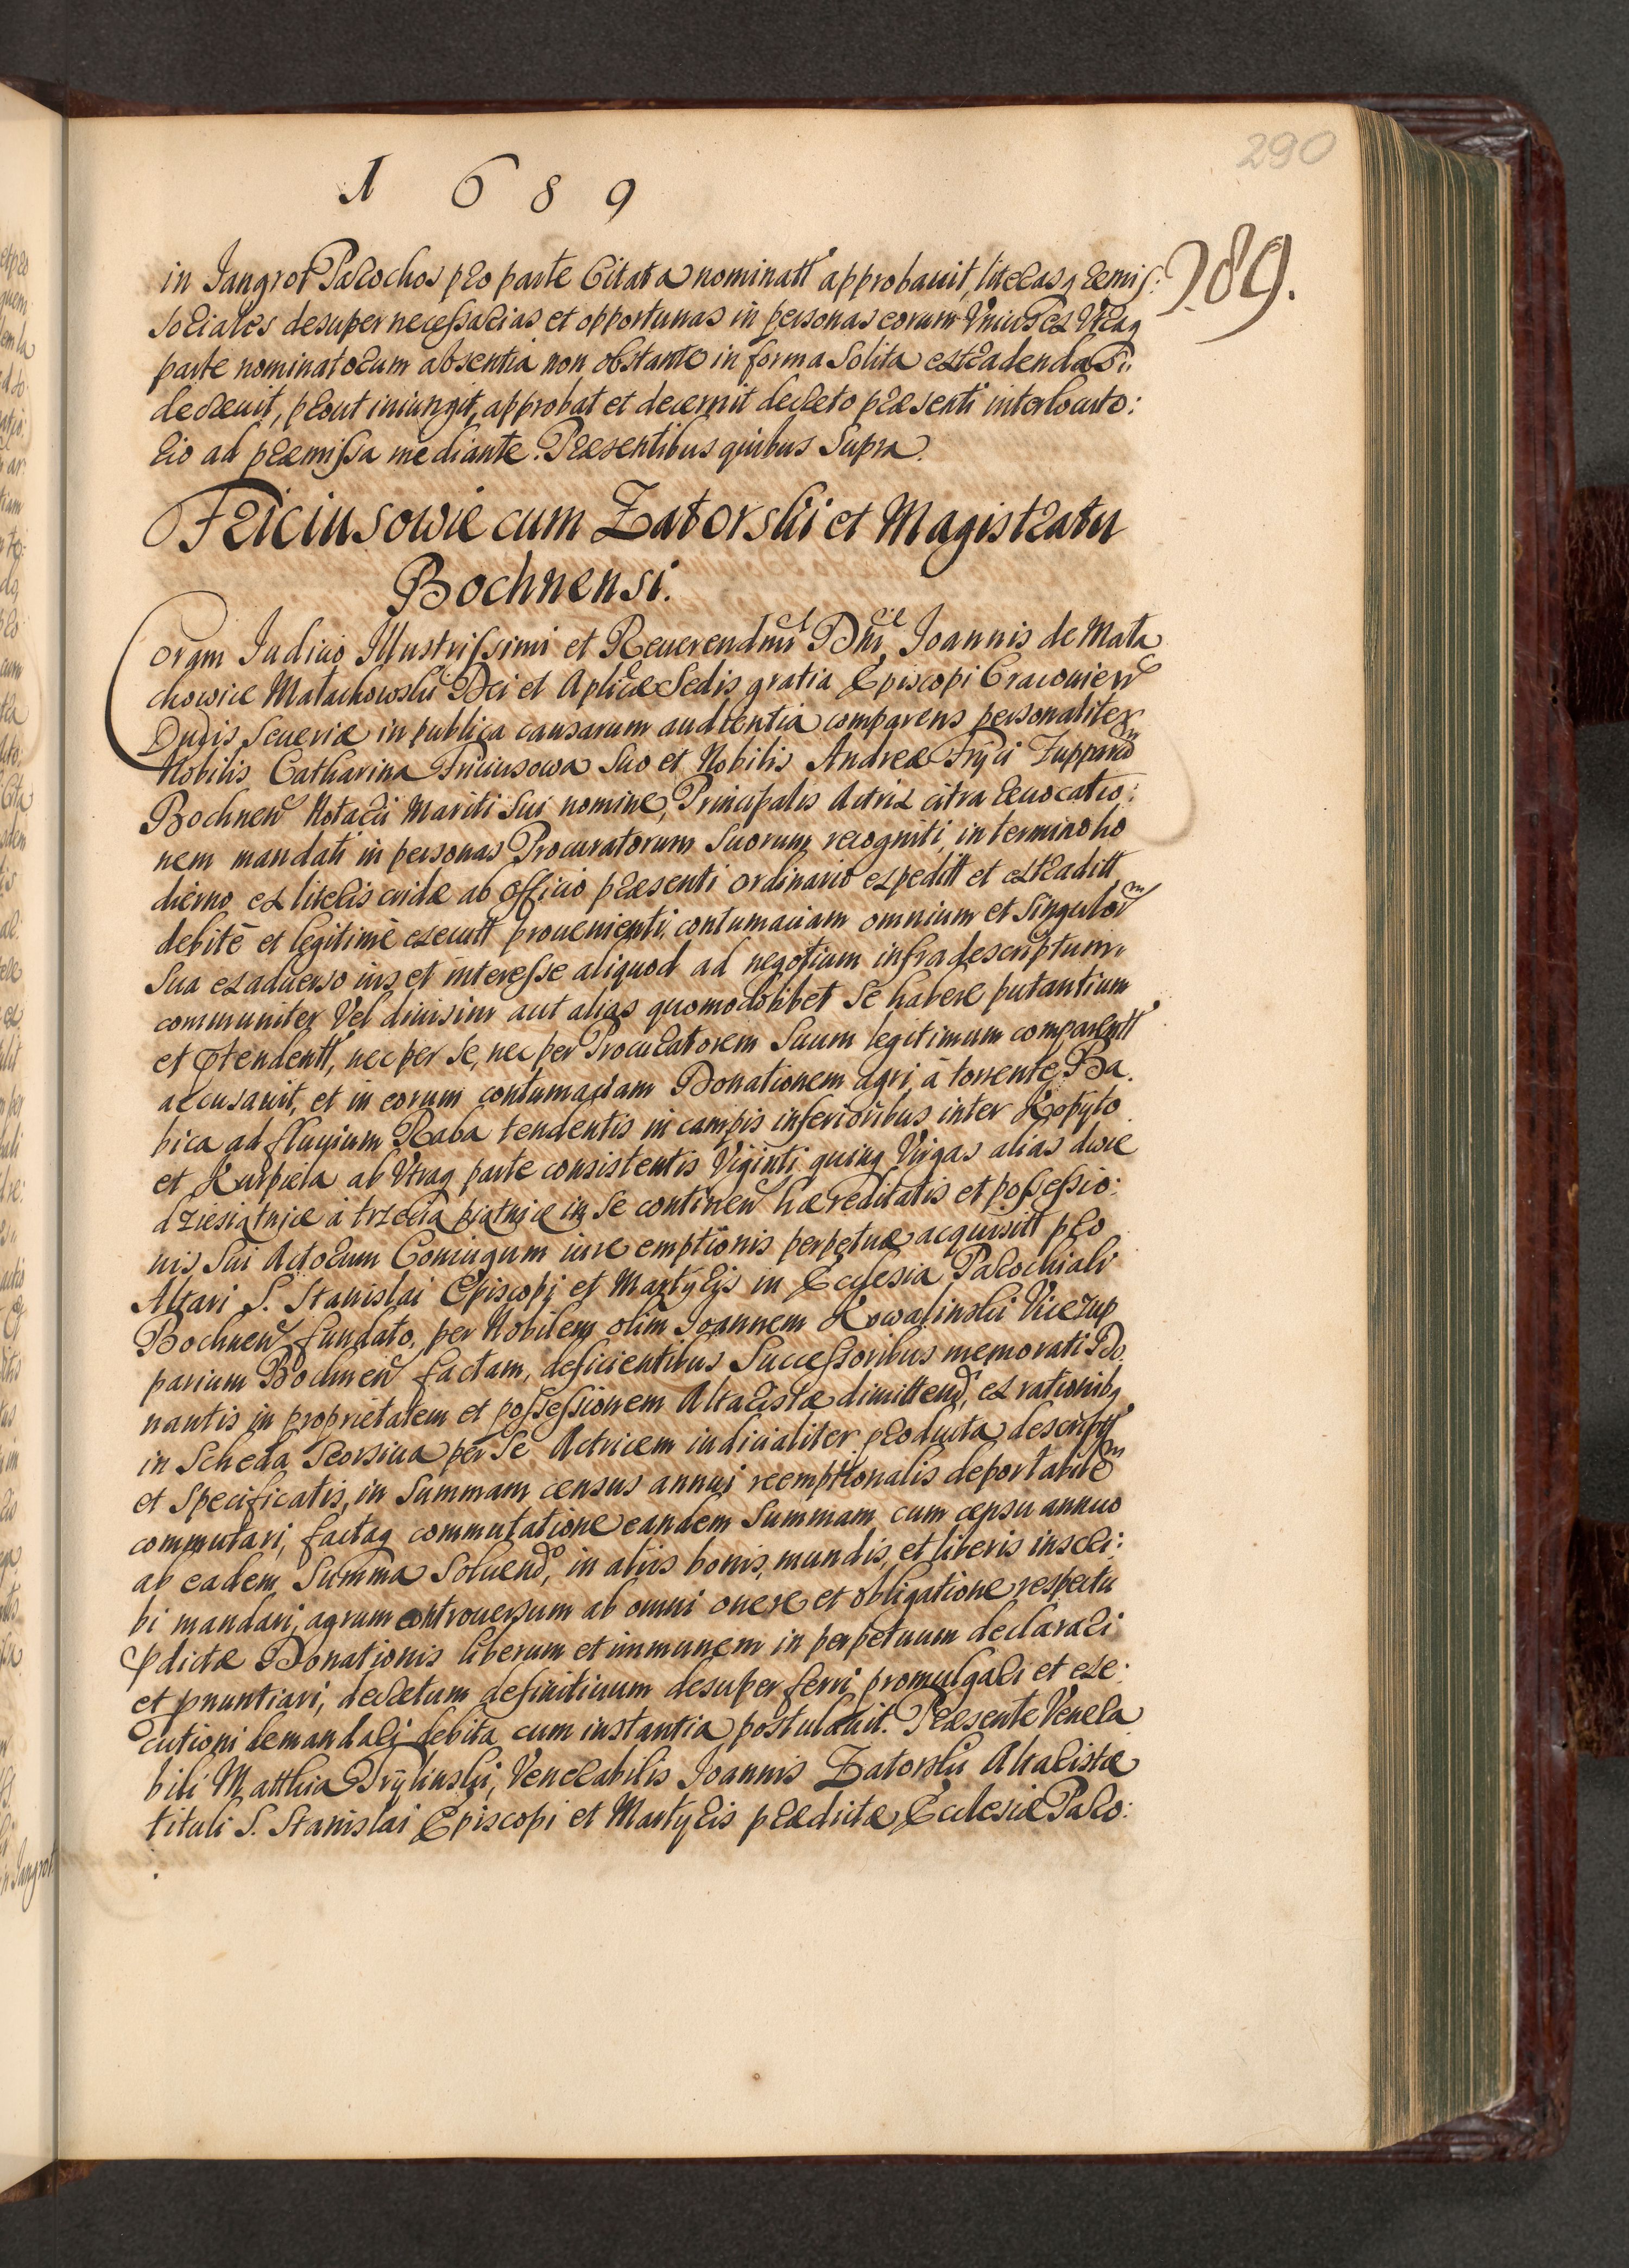 290
1689
289.
in Jangrot Parochos pro parte Citata nominatt approbauit, literasq remis:
soriales desuper necessarias et opportunas in personas eorum Vnius ex Vtraq
parte nominatorum absentia non obstante in forma Solita extradendas
decreuit, prout iniungit, approbat et decernit decreto præsenti interlocuto:
rio ad præmissa mediante. Præsentibus quibus Supra.
Friciusowie cum Zatorski et Magistratu
Bochnensi.
Coram Iudicio Illustrissimi et Reuerendmi Dni Joannis de Mała
chowice Małachowski Dei et Aplicæ Sedis gratia Episcopi Cracouien
Ducis Seueriæ in publica causarum audientia comparens personaliter
Nobilis Catharina Friciusowa Suo et Nobilis Andreæ Fryci Zuppar
Bochnen Notarii Mariti Sui nomine, Principalis Actrix citra reuocatio:
nem mandati in personas Procuratorum Suorum recogniti, in termino ho
dierno ex literis cridæ ab Officio præsenti ordinario expeditt et extraditt
debitè et legitimè executt prouenienti, contumaciam omnium et Singulor
Sua ex aduerso ius et interesse aliquod ad negotium infradescriptum
communiter Vel diuisim aut alias quomodolibet Se habere putantium
et prtendentt, nec per Se, nec per Procuratorem Suum legitimum comparentt
accusauit, et in eorum contumaciam Donationem agri, à torrente Ba
bica ad fluuium Raba tendentis in campis inferioribus inter Kopyto
et Karpiela ab Vtraq parte consistentis Viginti quinq Virgas alias dwie
dziesiątnice a trzecia piątnice in Se continen hæreditatis et possessio:
nis Sui Actorum Coniugum iure emptionis perpetuæ acquisitt pro
Altari S. Stanislai Episcopi et Martyris in Ecclesia Parochiali
Bochnen fundato, per Nobilem olim Joannem Kowalinski Vicezup
parium Bochnen factam, deficientibus Successoribus memorati Do
nantis in proprietatem et possessionem Altaristæ dimittend, ex rationibq
in Scheda Seorsiua per Se Actricem iudicialiter producta descriptt
et Specificatis, in Summam census annui reemptionalis deportabile
commutari, factaq commutatione eandem Summam cum censu annuo
ab eadem Summa Soluendo, in aliis bonis, mundis, et liberis inscri:
bi mandari, agrum controuersum ab omni onere et obligatione respectu
prdictæ Donationis liberum et immunem in perpetuum declarari
et pnuntiari, decretum definitiuum desuper ferri, promulgari et exe:
cutioni demandari debita cum instantia postulauit. Præsente Venera
bili Matthia Trylinski, Venerabilis Joannis Zatorski Altaristæ
tituli S. Stanislai Episcopi et Martyris prædictæ Ecclesiæ Paro: